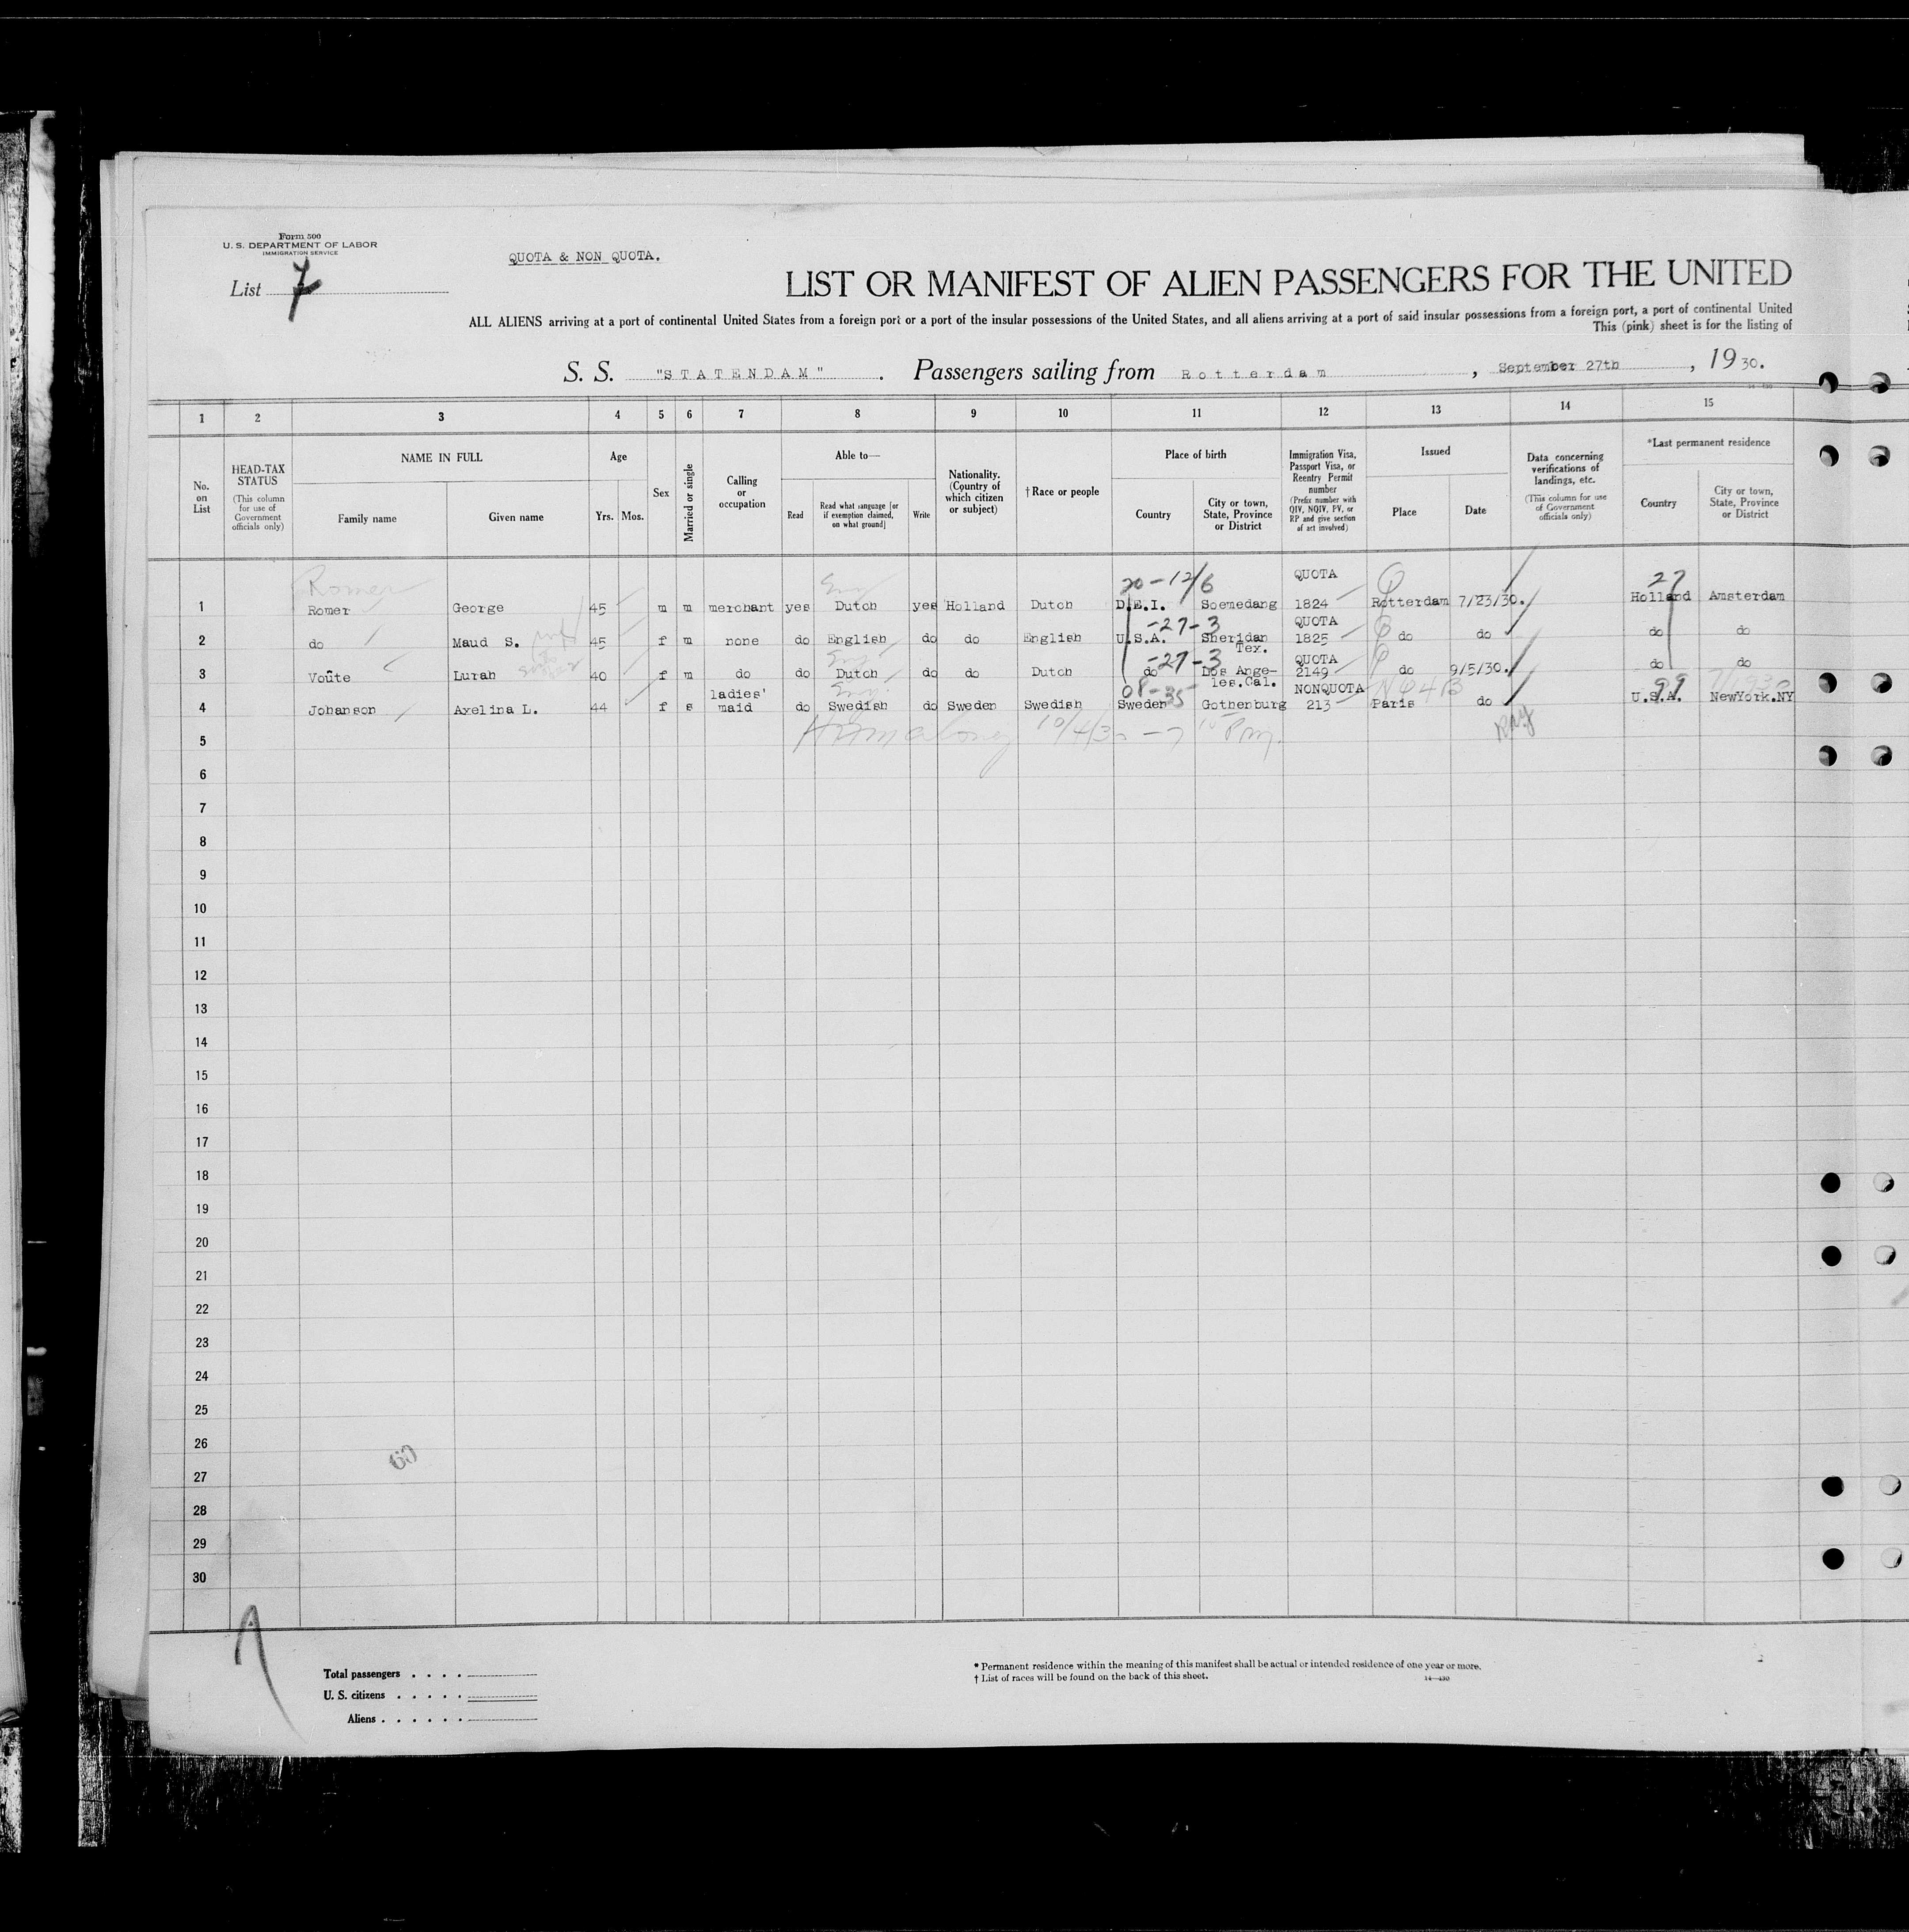 Form 500
U. S. DEPARTMENT OF LABOR
IMMIGRATION SERVICE
List 7
QUOTA & NON QUOTA.
LIST OR MANIFEST OF ALIEN PASSENGERS FOR THE UNITED
ALL ALIENS arriving at a port of continental United States from a foreign port or a port of the insular possessions of the United States, and all aliens arriving at a port of said insular possessions from a foreign port, a port of continental United
This (pink) sheet is for the listing of
S. S. "STATENDAM" . Passengers sailing from Rotterdam , September 27th , 19 30.
1 2 3 4 5 6 7 8 9 10 11 12 13 14 15
No. on List
HEAD-TAX STATUS (This column for use of Government officials only)
NAME IN FULL
Family name Given name
Age
Yrs. Mos.
Sex
Married or single
Calling or occupation
Able to—
Read Read what language [or if exemption claimed, on what ground] Write
Nationality. (Country of which citizen or subject)
† Race or people
Place of birth
Country City or town, State, Province or District
Immigration Visa, Passport Visa, or Reentry Permit number (Prefix number with QIV, NQIV, PV, or RP and give section of act involved)
Issued
Place Date
Data concerning verifications of landings, etc. (This column for use of Government officials only)
*Last permanent residence
Country City or town, State, Province or District
Romer Eng 20-12/6 QUOTA Q 27
1 Romer George 45 m m merchant yes Dutch yes Holland Dutch D.E.I. Soemedang 1824 Rotterdam 7/23/30. Holland Amsterdam
-27-3 QUOTA
2 do Maud S. 45 f m none do English do do English U.S.A. Sheridan Tex. 1825 do do do do
Eng -27-3 QUOTA
3 Voûte Lurah 40 f m do do Dutch do do Dutch do Dos Ange- les.Cal. 2149 do 9/5/30. do do
Eng. 08-35 NONQUOTA NQ4B 99
4 Johanson Axelina L. 44 f s ladies' maid do Swedish do Sweden Swedish Sweden Gothenburg 213 Paris do U.S.A. NewYork.NY
5
6
7
8
9
10
11
12
13
14
15
16
17
18
19
20
21
22
23
24
25
26
27
28
29
30
Total passengers . . . .
U. S. citizens . . . . .
Aliens . . . . . .
* Permanent residence within the meaning of this manifest shall be actual or intended residence of one year or more.
† List of races will be found on the back of this sheet.
14—430